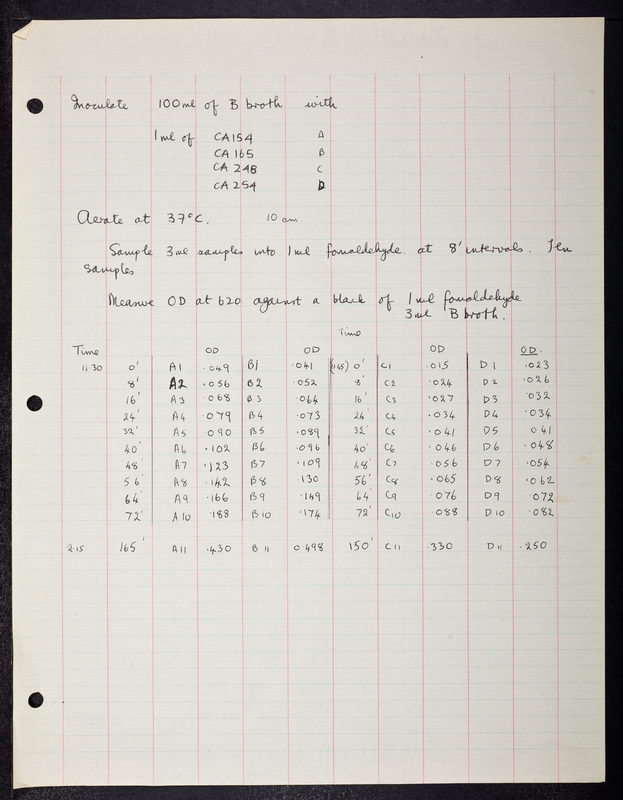 Inoculate 100ml of B broth with
1ml of CA154 A
CA 165 B
CA 248 C
CA 254 D
Aerate at 37°C. 10 am
Sample 3ml samples into 1ml formaldehyde at 8' intervals. Ten
samples
Measure OD at 620 against a blank of 1ml formaldehyde
3ml B broth.
Time
Time OD OD OD OD.
11.30 0' A1 .049 B1 .041 0' C1 .015 D1 .023
8' A2 .056 B2 .052 8' C2 .024 D2 .026
16' A3 068 B3 .064 16' C3 .027 D3 .032
24' A4 .079 B4 .073 24' C4 .034 D4 .034
32' A5 .090 B5 .089 32' C5 .041 D5 041
40' A6 .102 B6 .096 40' C6 .046 D6 .048
48' A7 .123 B7 .109 48' C7 .056 D7 .054
56' A8 .142 B8 130 56' C8 .065 D8 .062
64' A9 .166 B9 .149 64' C9 .076 D9 .072
72' A10 .188 B10 .174 72' C10 .088 D10 .082
2.15 165' A11 .430 B11 0.498 150' C11 .330 D11 .250